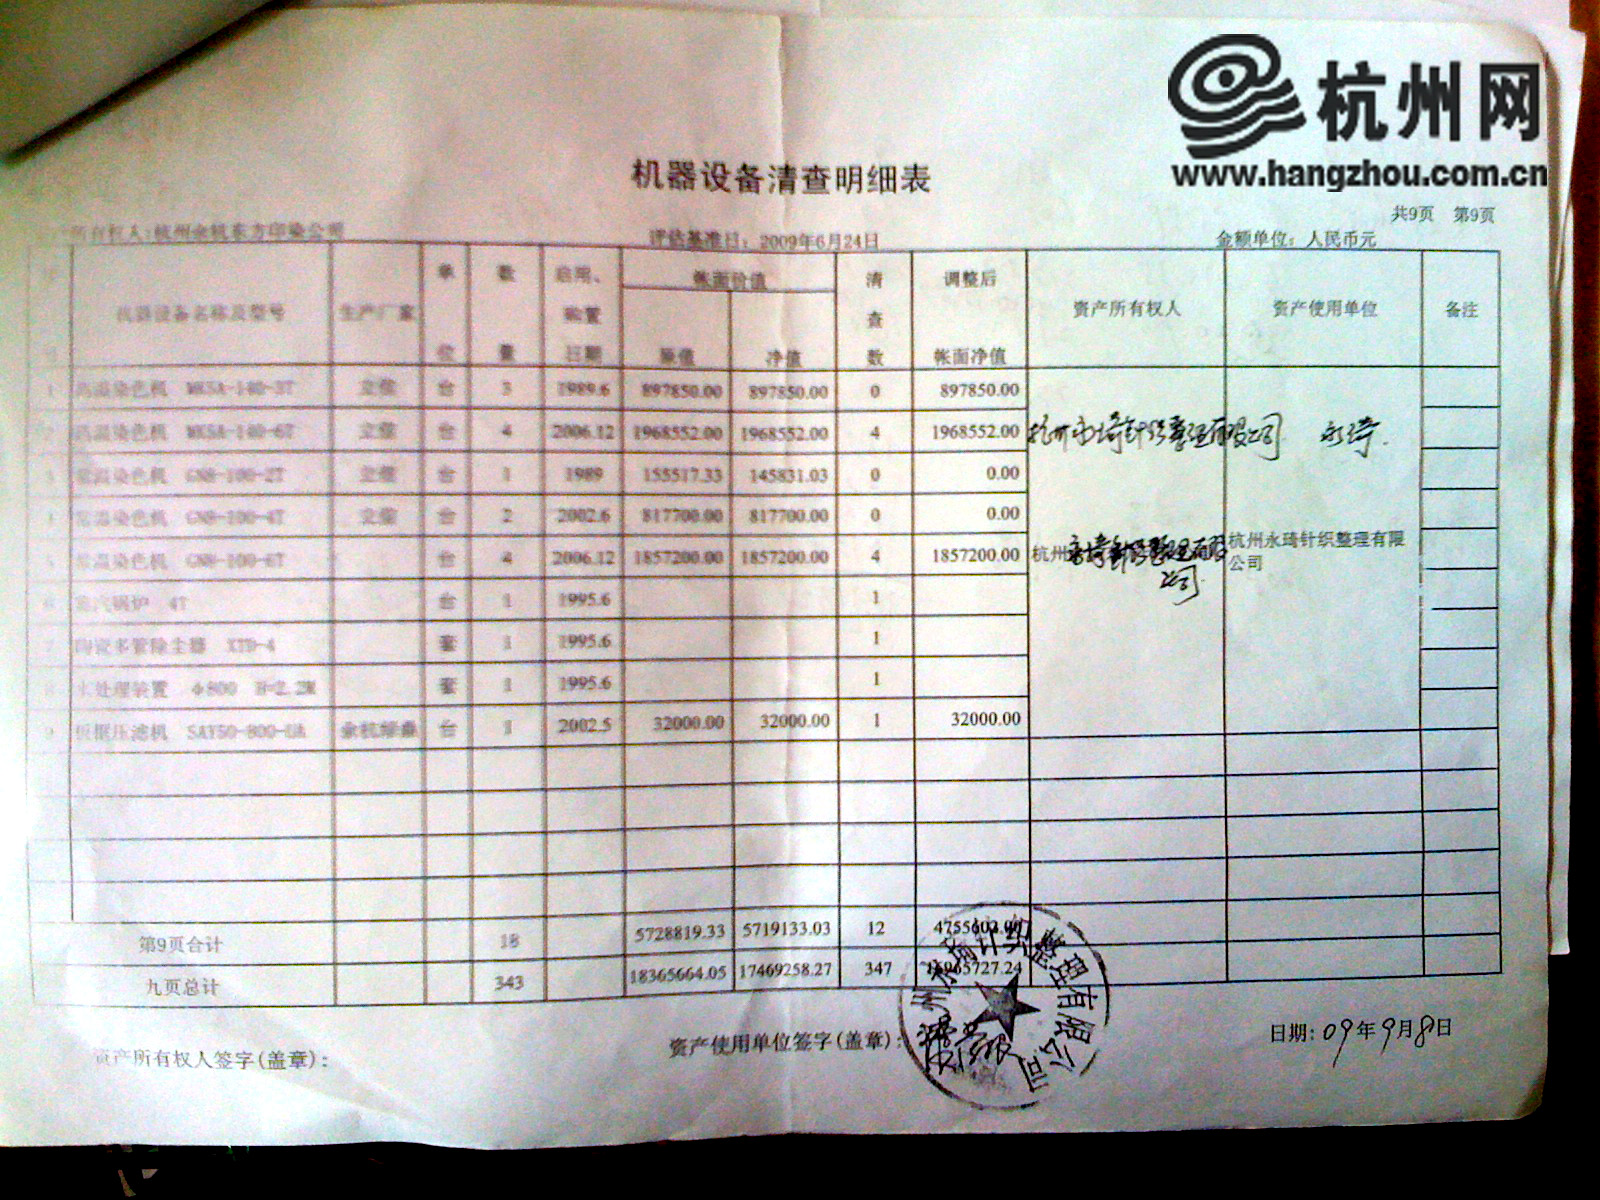 杭州网
www.hangzhou.com.cn
机器设备清查明细表
共9页 第9页
所有权人:杭州余杭东方印染公司 评估基准日: 2009年6月24日 金额单位: 人民币元
机器设备名称及型号 生产厂家 单位 数量 启用、购置日期 帐面价值 原值 净值 清查数 调整后帐面净值 资产所有权人 资产使用单位 备注
1 高温染色机 台 3 1989.6 897850.00 897850.00 0 897850.00
2 高温染色机 台 4 2006.12 1968552.00 1968552.00 4 1968552.00 杭州永琦针织整理有限公司 永琦.
3 常温染色机 GN8-100-2T 台 1 1989 155517.33 145831.03 0 0.00
4 常温染色机 GN8-100-4T 台 2 2002.6 817700.00 817700.00 0 0.00
5 常温染色机 GN8-100-6T 台 4 2006.12 1857200.00 1857200.00 4 1857200.00 杭州永琦针织整理有限公司 杭州永琦针织整理有限公司
6 蒸汽锅炉 4T 台 1 1995.6 1
7 陶瓷多管除尘器 XTD-4 套 1 1995.6 1
8 水处理装置 Φ800 H=2.2M 套 1 1995.6 1
9 板框压滤机 台 1 2002.5 32000.00 32000.00 1 32000.00
第9页合计 18 5728819.33 5719133.03 12 4755602.00
九页总计 343 18365664.05 17469258.27 347 965727.24
资产所有权人签字(盖章): 资产使用单位签字(盖章): 日期: 09年9月8日
杭州永琦针织整理有限公司